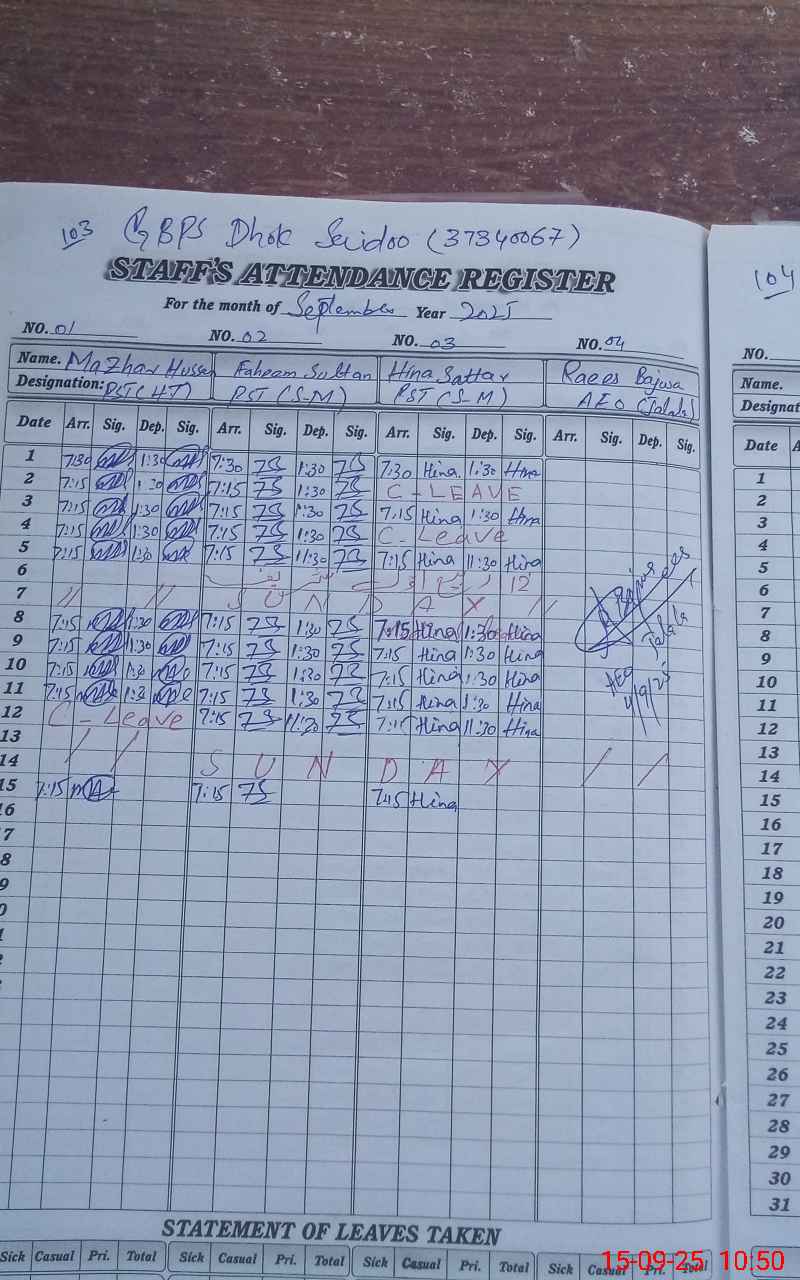 103 GBPS Dhok Saidoo (37340067)
104
STAFF'S ATTENDANCE REGISTER
For the month of September Year 2025
NO. 01 NO. 02 NO. 03 NO. 04 NO.
Name. Mazhar Hussain Faheem Sultan Hina Sattar Raees Bajwa Name.
Designation: PST(HT) PST (S-M) PST (S-M) AEO (Jalala) Designat
Date Arr. Sig. Dep. Sig. Arr. Sig. Dep. Sig. Arr. Sig. Dep. Sig. Arr. Sig. Dep. Sig. Date A
1 7:30 1:30 7:30 1:30 7:30 Hina 1:30 Hina 1
2 7:15 1:30 7:15 1:30 C-LEAVE 2
3 7:15 1:30 7:15 1:30 7:15 Hina 1:30 Hina 3
4 7:15 1:30 7:15 1:30 C-Leave 4
5 7:15 11:30 7:15 11:30 7:15 Hina 11:30 Hina 5
6 12 6
7 // // S U N D A Y // 7
8 7:15 1:30 7:15 1:30 7:15 Hina 1:30 Hina 8
9 7:15 1:30 7:15 1:30 7:15 Hina 1:30 Hina 9
10 7:15 1:30 7:15 1:30 7:15 Hina 1:30 Hina 10
11 7:15 1:30 7:15 1:30 7:15 Hina 1:30 Hina 11
12 C-Leave 7:15 11:30 7:15 Hina 11:30 Hina 12
13 13
14 / / S U N D A Y / / 14
15 7:15 7:15 7:15 Hina 15
R Bajwa
AEO Jalala
4/9/25
16 16
7 17
8 18
9 19
0 20
21
22
23
24
25
26
27
28
29
30
31
STATEMENT OF LEAVES TAKEN
Sick Casual Pri. Total Sick Casual Pri. Total Sick Casual Pri. Total Sick Casual Pri. Total
15-09-25 10:50